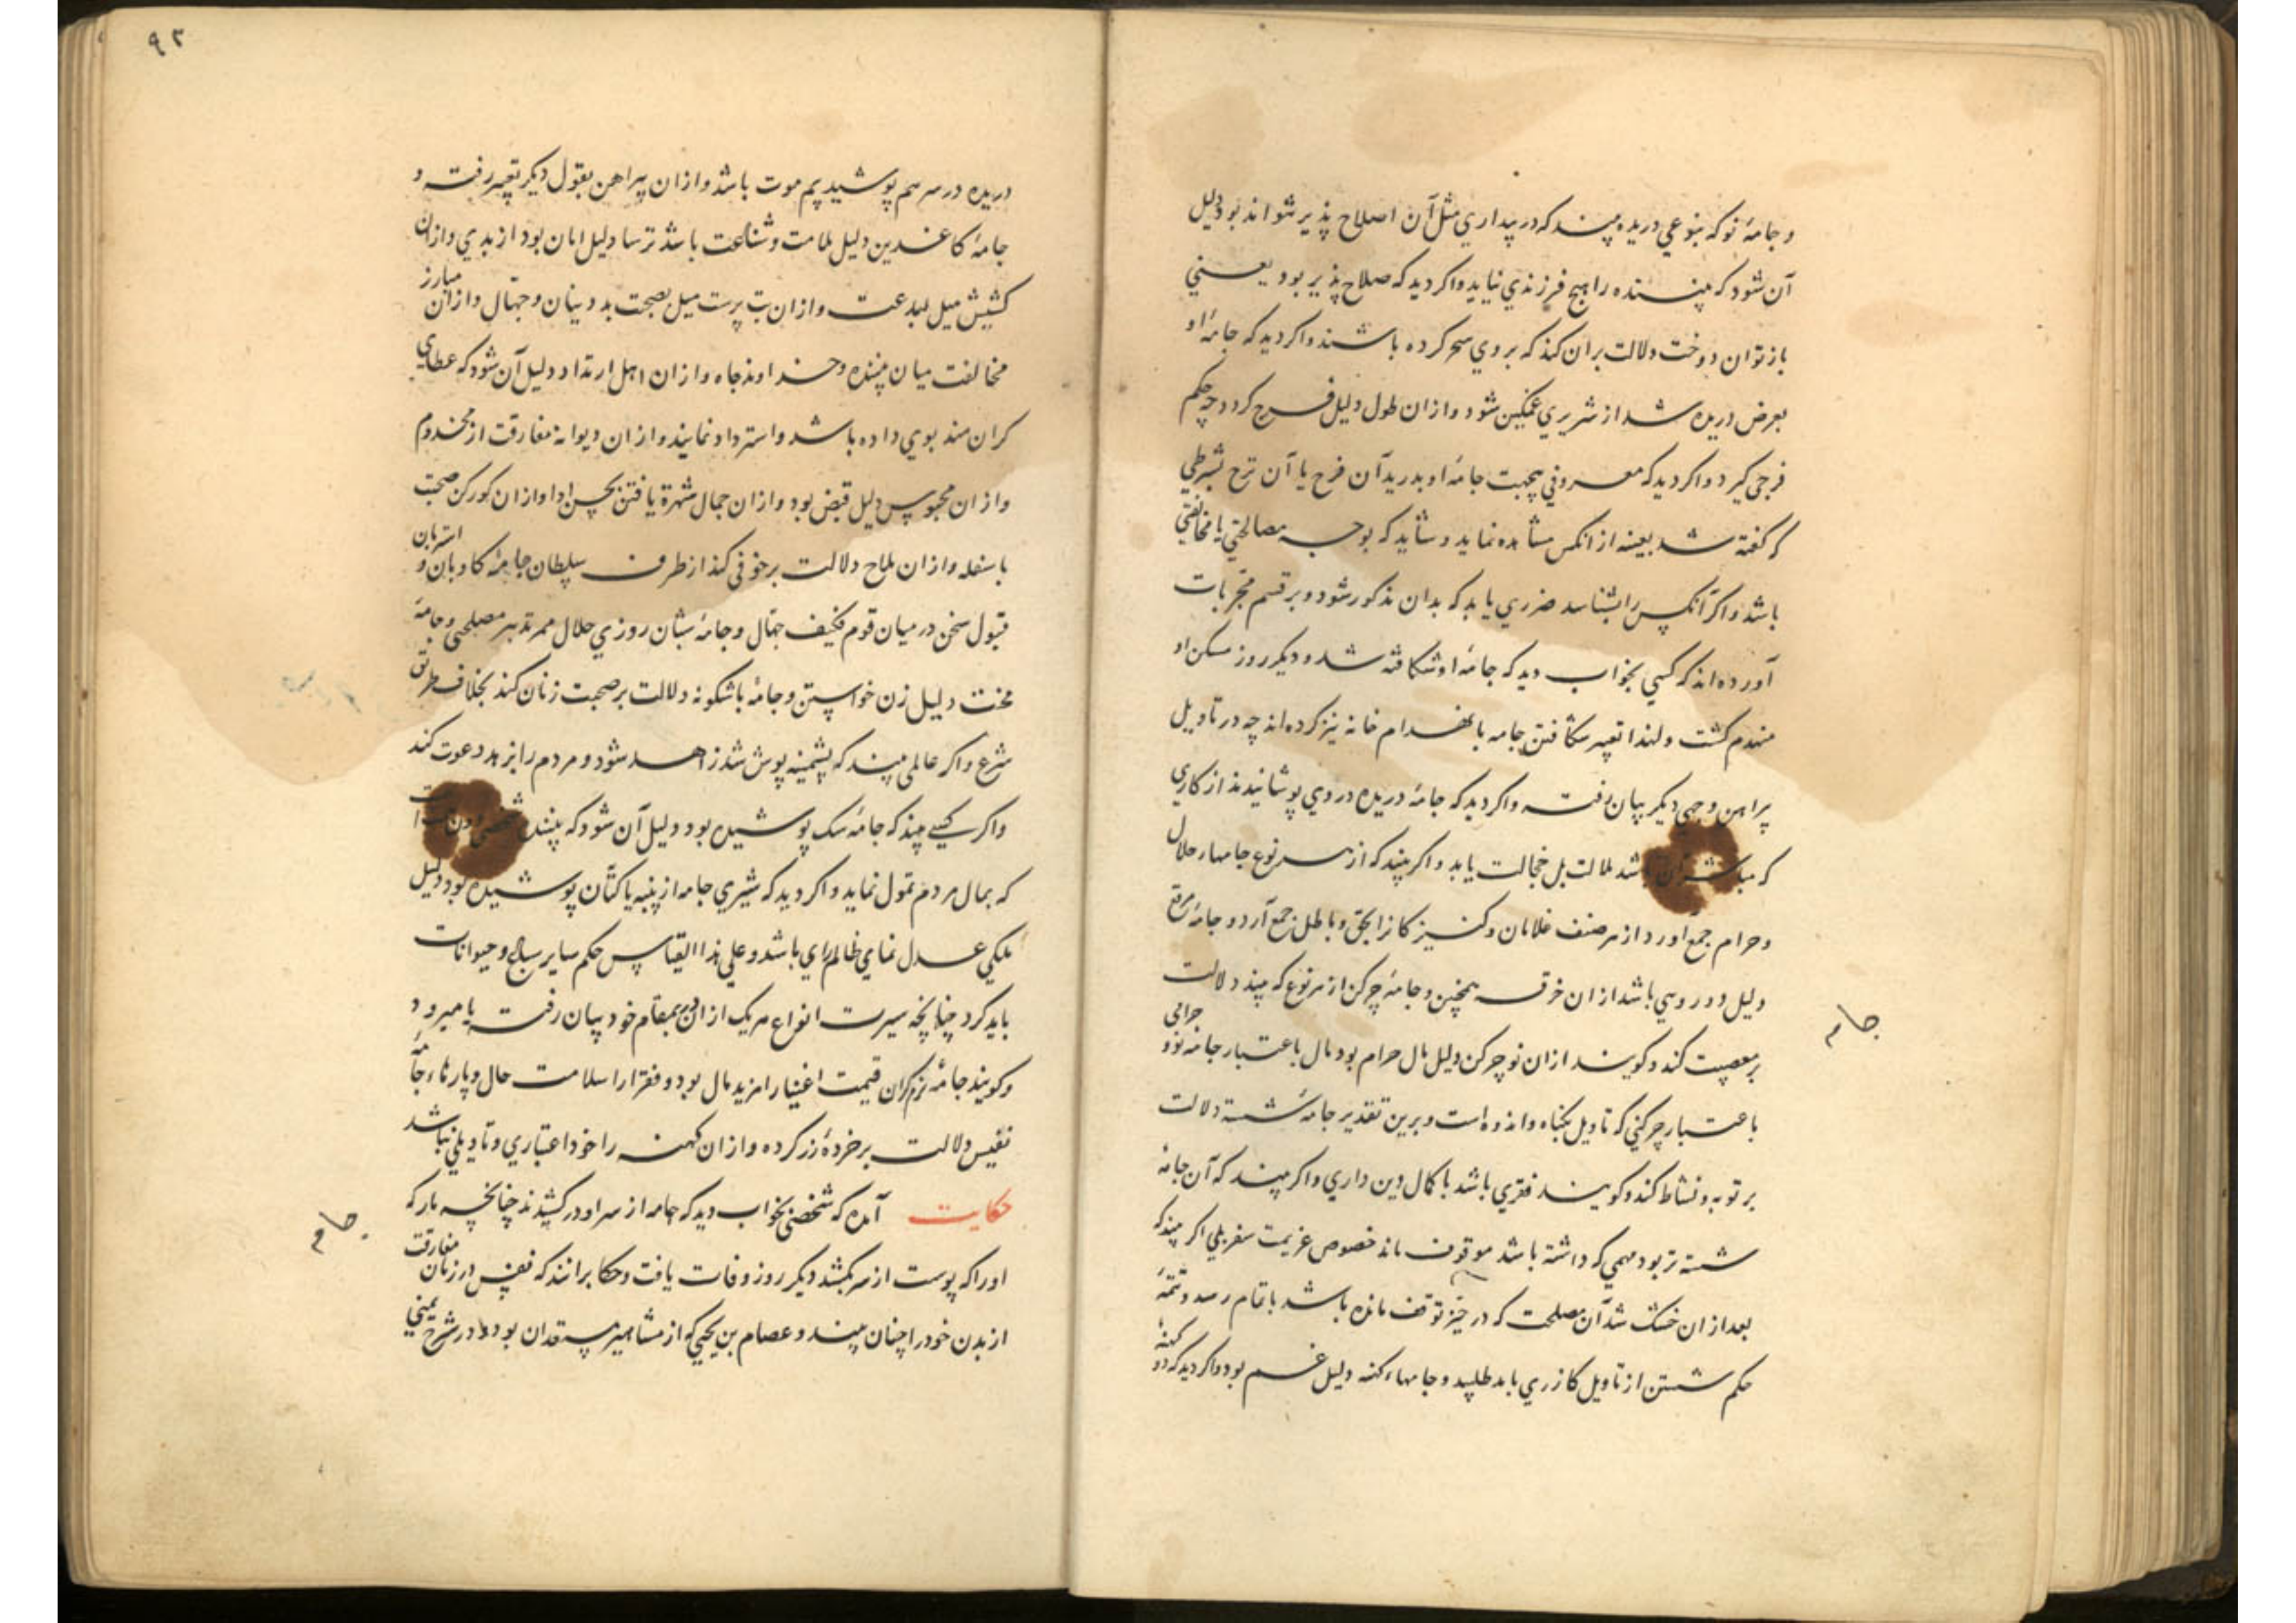 و جامهٔ نو که بنوعی دریده بیند که در بیداری مثل آن اصلاح پذیر نتواند بود دلیل
آن شود که بیننده را هیچ فرزندی نیاید و اکر دید که صلاح پذیر بود یعنی
باز توان دوخت دلالت بران کند که بروی سحر کرده باشند و اکر دید که جامهٔ او
بعرض دریده شد از شریری غمکین شود و از ان طول دلیل فرج کردد چه حکم
فرجی کیرد و اکر دید که معروفی بیجهت جامهٔ او بدرید آن فرح یا آن ترح بشرطی
که کفته شد بعینه از انکس مشاهده نماید و شاید که بوجه مصالحتی یا مخالفتی
باشد و اکر آنکس را بشناسد ضرری یابد که بدان مذکور شود و بر قسم مجربات
آورده‌اند که کسی بخواب دید که جامهٔ او شکافته شد و دیکر روز مسکن او
منهدم کشت و لهذا تعبیر شکافتن جامه بانهدام خانه نیز کرده‌اند چه در تاویل
پیراهن وجهی دیکر بیان رفت و اکر دید که جامهٔ دریده در وی پوشانیدند از کاری
که باشد ملالت بل خجالت یابد و اکر بیند که از هر نوع جامها از حلال
و حرام جمع آورد از هر صنف غلامان و کنیزکانرا بحق و باطل جمع آرد و جامهٔ مرقع
دلیل دورویی باشد از ان خرقه همچنین و جامهٔ چرکن از هر نوع که بیند دلالت
بر معصیت کند و کویند از ان نو چرکن دلیل مال حرام بود مال باعتبار جامه نو و حرامی
باعتبار چرکنی که تاویل بکناه و اندوه است و برین تقدیر جامهٔ شسته دلالت
بر توبه و نشاط کند و کویند فقری باشد با کمال دین داری و اکر بیند که آن جامهٔ
شسته تر بود مهمی که داشته باشد موقوف ماند خصوص عزیمت سفر بلی اکر بیند که
بعد از ان خشک شد آن مصلحت که در حیز توقف مانده باشد باتمام رسد و تتمهٔ
حکم شستن از تاویل کازری باید طلبید و جامهاء کهنه دلیل غم بود و اکر دید که دو کهنهٔ
جام
۹۳
دریده در سر هم پوشید بیم موت باشد و از ان پیراهن بقول دیکر تعبیر رفت و
جامهٔ کاغدین دلیل ملامت و شناعت باشد ترسا دلیل امان بود از بدی و از ان
کشیش میل ببدعت و از ان بت پرست میل بصحبت بد دینان و جهّال و از ان مبارز
مخالفت میان بیننده و خداوند جاه و از ان اهل ارتداد دلیل آن شود که عطای
کران مند بوی داده باشد و استرداد نمایند و از ان دیوانه مفارقت از مخدوم
و از ان محبوس دلیل قبض بود و از ان جمال شهرة یافتن بحسن ادا و از ان کورکن صحبت
با سفله و از ان ملاح دلالت بر خوفی کند از طرف سلطان جامهٔ کاوبان و اشتربان
قبول سخن در میان قوم جهّال و جامهٔ شبان روزی حلال ممر تدبیر مصلحتی و جامهٔ
مخنث دلیل زن خواستن و جامهٔ باشکونه دلالت بر صحبت زنان کند بخلاف طریق
شرع و اکر عالمی بیند که پشمینه پوش شد زاهد شود و مردم را بزهد دعوت کند
و اکر کسی بیند که جامهٔ سک پوشیده بود دلیل آن شود که بیننده شخصی
که بمال مردم تمول نماید و اکر دید که شیری جامه از پنبه یا کتان پوشیده بود دلیل
ملکی عدل نمای ظالم رای باشد و علی هذا القیاس حکم سایر سباع و حیوانات
باید کرد چنانچه سیرت انواع هریک از ان بمقام خود بیان رفت یا میرود
و کویند جامهٔ نرم کران قیمت اغنیا را مزید مال بود و فقرا را سلامت حال و پارهاء جامهٔ
نفیس دلالت بر خردهٔ زر کرده و از ان کهنه را خود اعتباری و تاویلی نباشد
حکایت آمده که شخصی بخواب دید که جامه از سر او در کشیدند چنانچه مار که
او را که پوست از سر بکشد دیکر روز وفات یافت و حکما برانند که نفس در زمان مفارقت
از بدن خود را چنان بیند و عصام بن یحیی که از مشاهیر مستعدان بود در شرح یمینی
جام